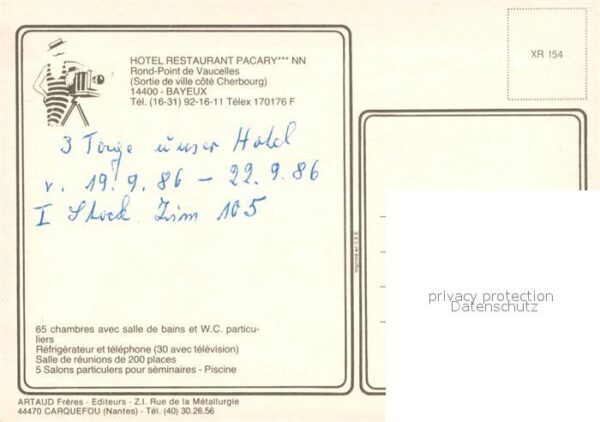 HOTEL RESTAURANT PACARY*** NN
Rond-Point de Vaucelles
(Sortie de ville côté Cherbourg)
14400 - BAYEUX
Tél. (16-31) 92-16-11 Télex 170176 F
XR 154
3 Tage unser Hotel
v. 19.9.86 - 22.9.86
I Stock Zim 105
Imprimé en C.E.E.
privacy protection
Datenschutz
65 chambres avec salle de bains et W.C. particu-
liers
Réfrigérateur et téléphone (30 avec télévision)
Salle de réunions de 200 places
5 Salons particuliers pour séminaires - Piscine
ARTAUD Frères - Editeurs - Z.I. Rue de la Métallurgie
44470 CARQUEFOU (Nantes) - Tél. (40) 30.26.56